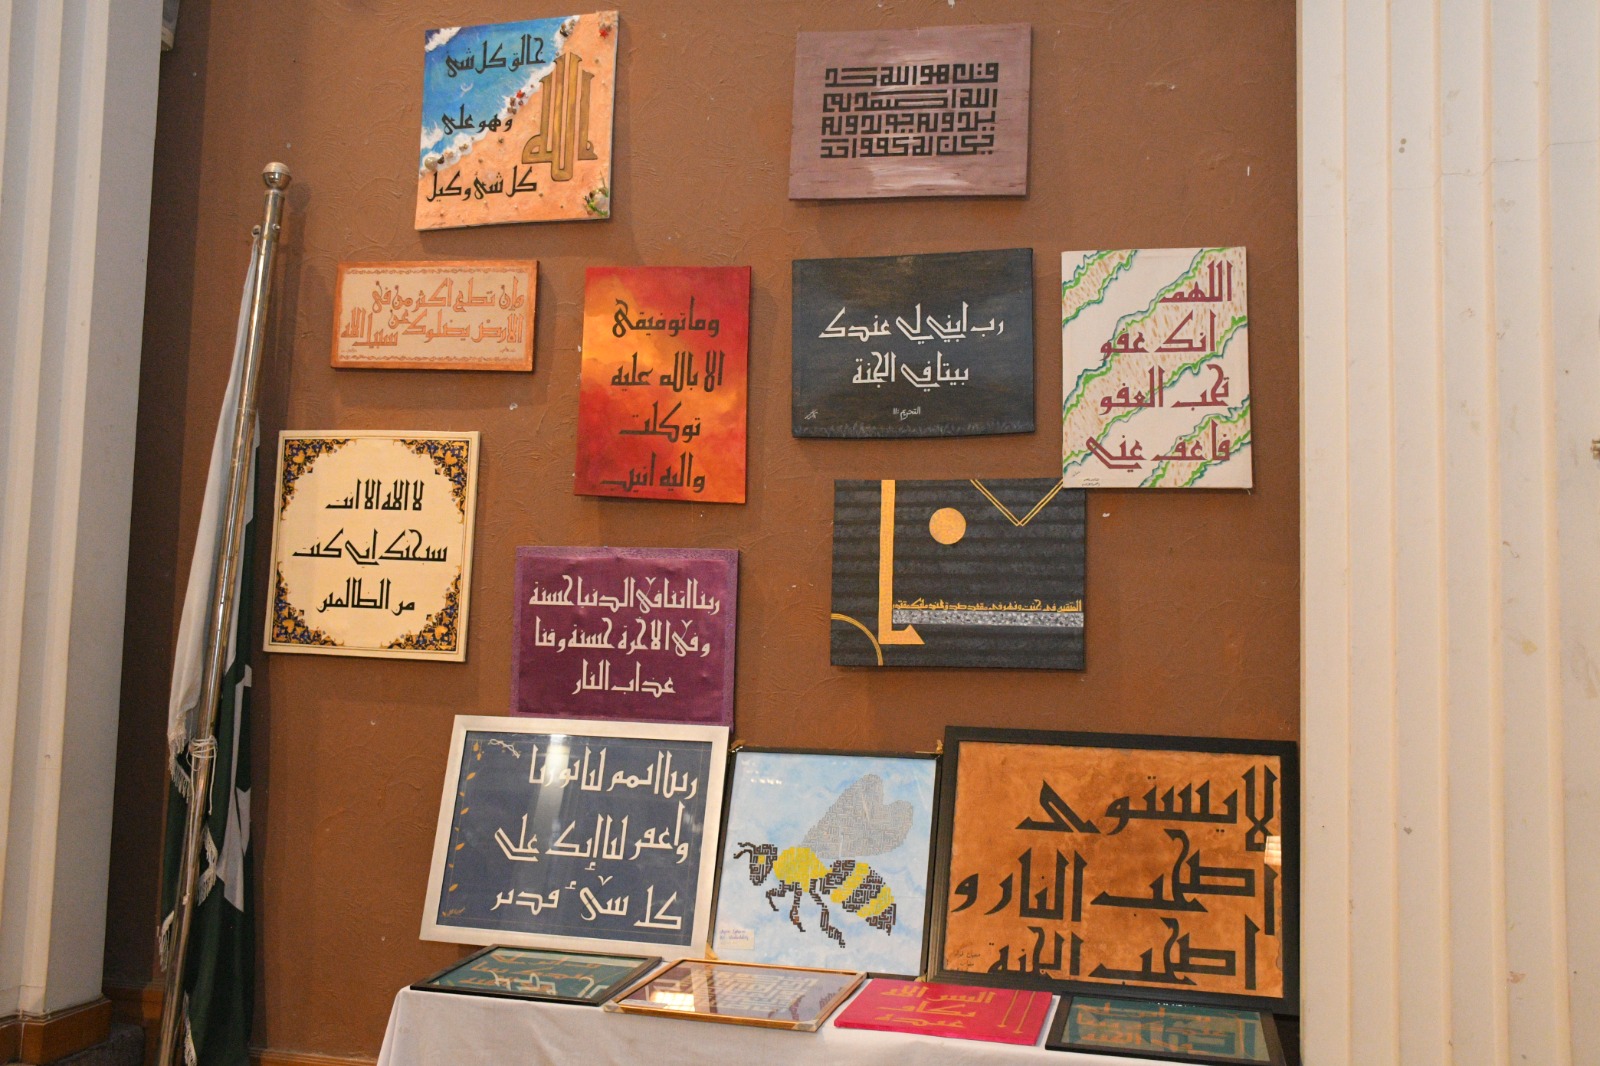 خالق كل شئ
الله
وهو على
كل شئ وكيل
قل هو الله احد
الله الصمد لم
يلد ولم يولد ولم
يكن له كفوا احد
وان تطع اكثر من في
الارض يضلوك عن سبيل الله
وما توفيقى
الا بالله عليه
توكلت
واليه انيب
رب ابني لي عندك
بيتا في الجنة
التحريم
اللهم
انك عفو
تحب العفو
فاعف عني
لا اله الا انت
سبحنك اني كنت
من الظالمين
ربنا اتنا في الدنيا حسنة
وفي الاخرة حسنة وقنا
عذاب النار
ربنا اتمم لنا نورنا
واغفر لنا إنك على
كل شئ قدير
لا يستوى
اصحب النار و
اصحب الجنة
اليس الله
بكاف
عبده